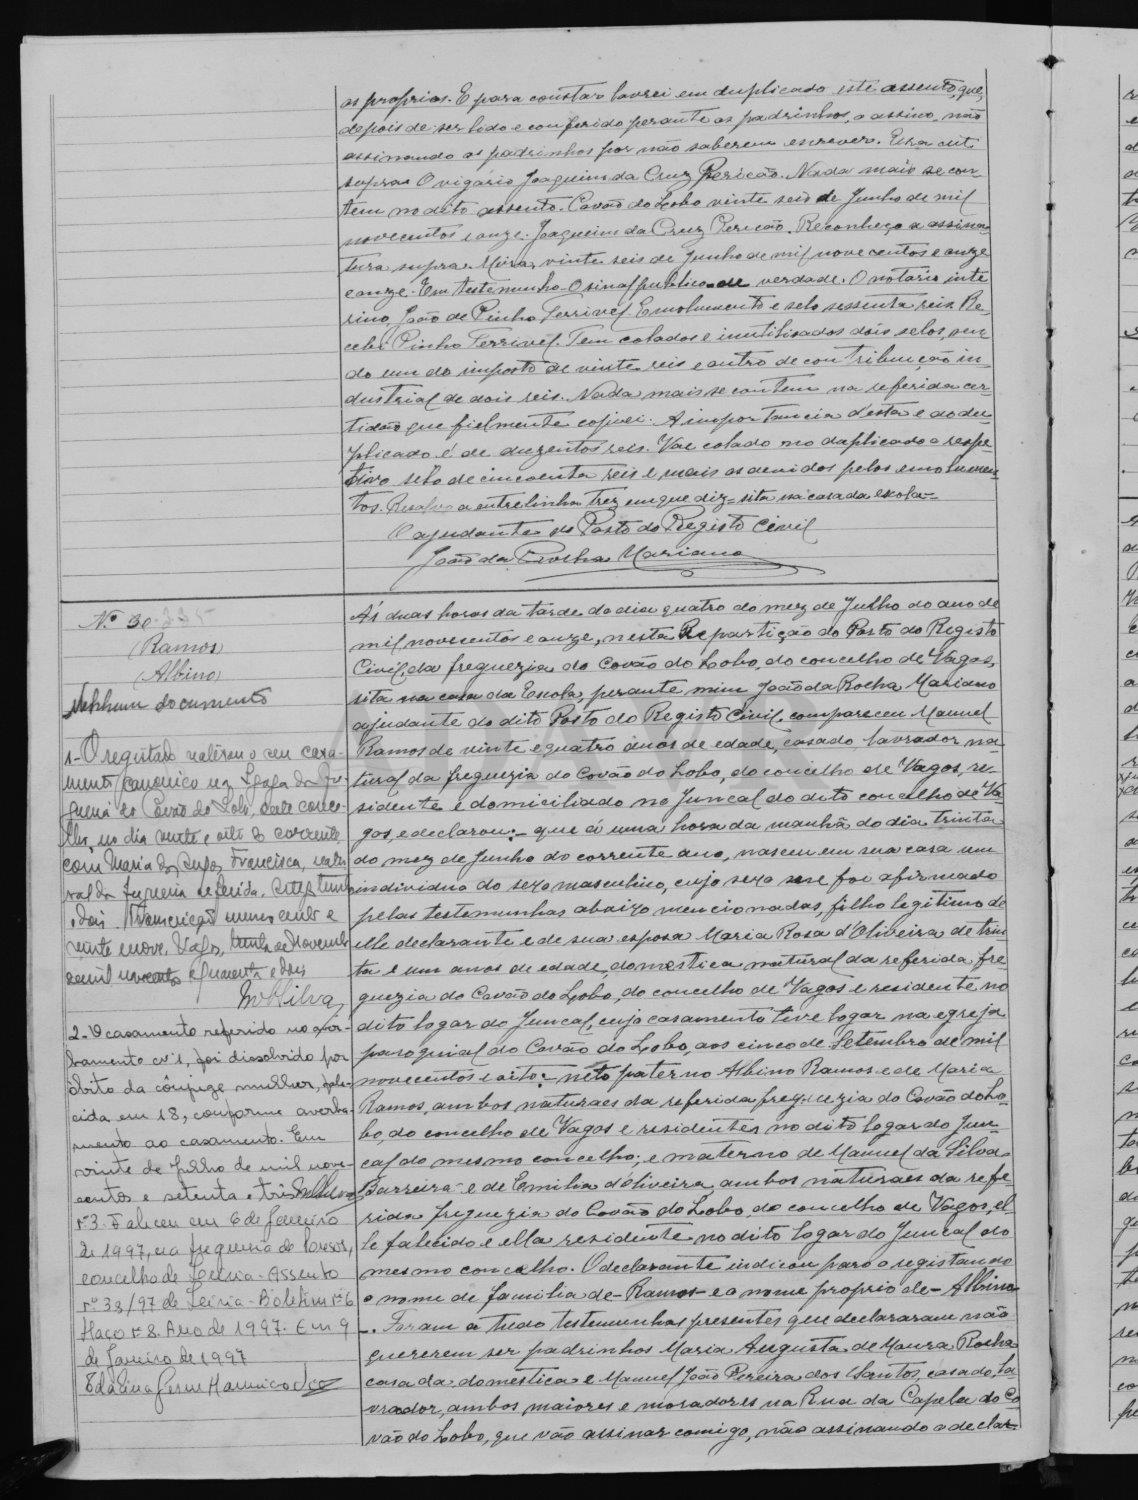 os proprios. E para constar lavrei em duplicado este assento, que,
depois de ser lido e conferido perante os padrinhos, o assino, não
assinando os padrinhos por não saberem escrever. Era ut
supra. O vigario Joaquim da Cruz Pericão. Nada mais se con-
tem no dito assento. Covão do Lobo vinte seis de Junho de mil
novecentos e onze. Joaquim da Cruz Pericão. Reconheço a assina-
tura supra. Mira, vinte seis de Junho de mil novecentos e onze
e onze. Em testemunho. O sinal publico de verdade. O notario inte
rino, João de Pinho Terrivel. Emolumento e selo sessenta reis. Re-
cebi Pinho Terrivel. Tem colados e inutilisados dois selos, sen-
do um do imposto de vinte reis e outro de contribuição in-
dustrial de dois reis. Nada mais se contem na referida cer-
tidão que fielmente copiei. A importancia d'esta e do du-
plicado é de duzentos reis. Vae colado no duplicado o respe-
tivo selo de cincoenta reis e mais os devidos pelos emolumen-
tos. Resalvo a entrelinha trez em que diz = sita na casa da escola =
O ajudante do Posto do Registo Civil
João da Rocha Mariano
Nº 30
(Ramos)
(Albino)
Nenhum documento
1- O registado celebrou o seu casa-
mento canonico na Igreja da fre-
guesia do Covão do Lobo, deste conce-
lho, no dia vinte e oito do corrente
com Maria de Francisca, natu-
ral da freguesia referida.
e dois. Transcrição numero cento e
vinte e nove. Vagos, trinta de Novembro
de mil novecentos e quarenta e dois
Silva
2. O casamento referido no aver-
bamento nº 1, foi dissolvido por
óbito da cônjuge mulher, fale-
cida em 18, conforme averba-
mento ao casamento. Em
vinte de Julho de mil nove-
centos e setenta e três
nº 3. Faleceu em 6 de Janeiro
de 1997, na freguesia de
concelho de Leiria - Assento
nº 38/97 de Leiria - Boletim nº 6
Maço nº 8. Ano de 1997. Em 9
de Janeiro de 1997
A's duas horas da tarde do dia quatro do mez de Julho do ano de
mil novecentos e onze, nesta Repartição do Posto do Registo
Civil, da freguezia do Covão do Lobo, do concelho de Vagos,
sita na casa da Escola, perante mim João da Rocha Mariano
ajudante do dito Posto do Registo Civil, compareceu Manuel
Ramos de vinte e quatro anos de edade, casado lavrador, na
tural da freguezia do Covão do Lobo, do concelho de Vagos, re-
sidente e domiciliado no Juncal do dito concelho de Va-
gos, e declarou: - que á uma hora da manhã do dia trinta
do mez de Junho do corrente ano, nasceu em sua casa um
individuo do sexo masculino, cujo sexo me foi afirmado
pelas testemunhas abaixo mencionadas, filho legitimo de
elle declarante e de sua esposa Maria Rosa d'Oliveira de trin-
ta e um anos de edade, domestica natural da referida fre-
guezia do Covão do Lobo, do concelho de Vagos e residente no
dito logar do Juncal, cujo casamento teve logar na egreja
paroquial do Covão do Lobo, aos cinco de Setembro de mil
novecentos e oito; neto paterno Albino Ramos e de Maria
Ramos, ambos naturaes da referida freguezia do Covão do Lo-
bo, do concelho de Vagos e residentes no dito logar do Jun-
cal do mesmo concelho; e materno de Manuel da Silva
Barreira e de Emilia d'Oliveira, ambos naturaes da refe-
rida freguezia do Covão do Lobo, do concelho de Vagos, el-
le falecido e ella residente no dito logar do Juncal do
mesmo concelho. O declarante indicou para o registando
o nome de familia de - Ramos - e o nome proprio de - Albino
-. Foram a tudo testemunhas presentes que declararam não
quererem ser padrinhos Maria Augusta de Moura Rocha
casada domestica e Manuel João Pereira dos Santos, casado, la
vrador, ambos maiores e moradores na Rua da Capela do Co
vão do Lobo, que vão assinar comigo, não assinando o declar-